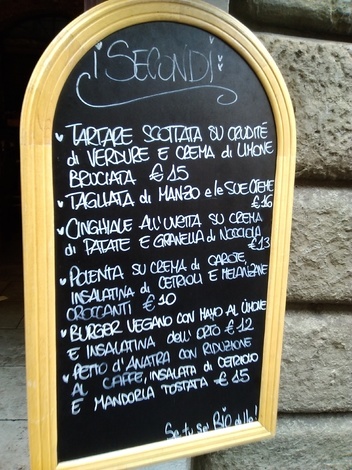 i SECONDi
TARTARE SCOTTATA SU CRUDITÉ
di VERDURE E CREMA di LIMONE
BRUCIATA €15
TAGLIATA di MANZO e le SUE CREME
€16
CINGHIALE ALL'UVETTA SU CREMA
di PATATE E GRANELLA di NOCCIOLA
€13
POLENTA SU CREMA di CAROTE,
INSALATINA di CETRIOLI E MELANZANE
CROCCANTI €10
BURGER VEGANO CON MAYO AL LIMONE
E INSALATINA dell'ORTO €12
PETTO D'ANATRA CON RIDUZIONE
AL CAFFÈ, INSALATA di CETRIOLO
E MANDORLA TOSTATA €15
Se tu sei BiO dillo!